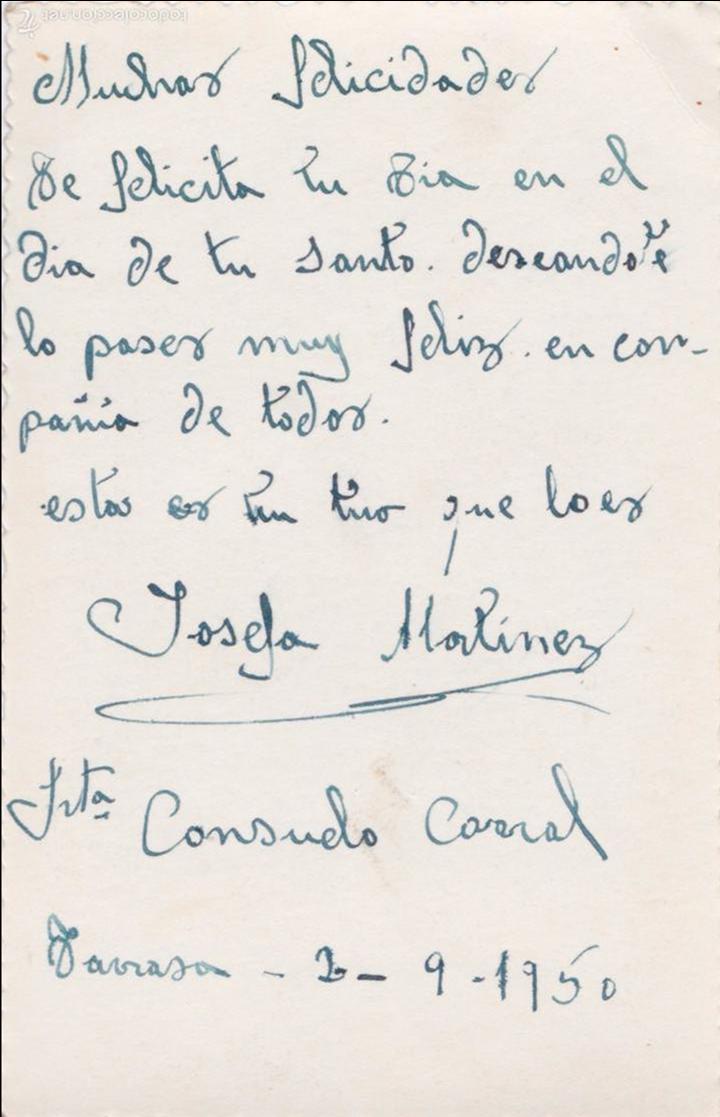 todocoleccion.net
Muchas felicidades
Te felicita tu Tia en el
dia de tu santo. deseandote
lo pases muy feliz. en con-
pañia de todos.
esta es tu que lo es
Josefa Martinez
Srta Consuelo Corral
Tarrasa - 2 - 9 - 1950